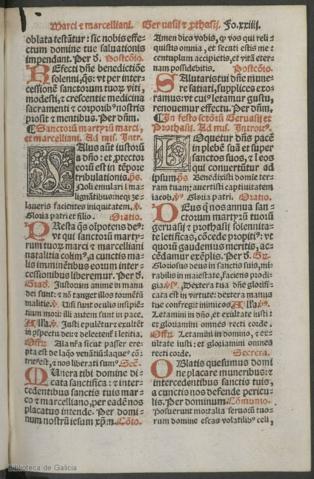 Marci z marcelliani. Geruasii z ꝓthasij. Fo.xxiiij.
oblata testãtur: sic nobis effe-
ctum domine tue saluationis
impendant. Per dñ. Postcõio.
solenni, q̃s: vt per inter-
cessionẽ sanctorum tuoꝝ viti,
modesti, z crescentie medicina
sacramenti z corporibꝰ nostris
prosit z mentibus. Per dñm.
Sanctorũ martyrũ marci,
et marcelliani. Ad mis. Intr.
Alus aũt iustorũ
a dño: et ꝓtector
eorũ est in tẽpore
tribulationis. ps.
Noli emulari i ma-
lignãtibus: neqꝫ ze-
laueris facientes iniquitatem.
Gloria patri et filio. Oratio.
Presta q̃s oĩpotens deꝰ:
vt qui sanctorũ marty-
rum tuoꝝ marci z marcelliani
natalitia colimꝰ, a cunctis ma-
lis imminẽtibus eorum inter-
cessionibus liberemur. Per dñ.
Grad. Iustorum anime in manu
dei sunt: z nõ tanget illos tormẽtũ
malitie. Visi sunt oculis insipiẽ-
tium mori: illi autem sunt in pace.
Alla. Iusti epulẽtur z exultẽt
in ꝯspectu dei: z delectent̃ i letitia.
Offer. Aĩa nr̃a sicut passer ere-
pta est de laq̃o venãtiũ: laqueꝰ cõ-
tritꝰ est, z nos liberati sumꝰ. Secr.
Munera tibi domine di-
cata sanctifica: z inter-
cedentibus sanctis tuis mar-
co z marcelliano, per eadẽ nos
placatus intende. Per domi-
num nostrũ iesum xp̃m. Cõio.
Amen dico vobis, ꝙ vos qui reli-
quistis omnia, et secuti estis me:
centuplum accipietis, et vitã eter-
nam possidebitis. Postcõio.
Salutaris tui dñe mune-
re satiati, supplices exo-
ramus: vt cuiꝰ letamur gustu,
renouemur effectu. Per dñm.
In festo sctorũ Geruasij et
Prothasij. Ad mis. Introitꝰ.
Loquetur dñs pacẽ
in plebẽ suã: et super
sanctos suos, z i eos
qui conuertũtur ad
ipsum. ps. Benedixisti domine ter-
ram tuam: auertisti captiuitatem
iacob. Gloria patri. Oratio.
Deus q̃ nos annua san-
ctorum martyrũ tuorũ
geruasij z prothasij solennita-
te letificas, cõcede propitiꝰ: vt
quorũ gaudemus meritis, ac-
cẽdamur exẽplis. Per dñ. Gr.
Gloriosus deus in sanctis suis, mi-
rabilis in maiestate, faciens prodi-
gia. Dextera tua dñe glorifi-
cata est in virtute: dextera manus
tue confregit inimicos. Alla.
Letamini in dño, et exultate iusti:
et gloriamini omnes recti corde.
Offer. Letamini in domino, z ex-
ultate iusti: et gloriamini omnes
recti corde. Secreta.
Oblatis quesumus domi
ne placare muneribus: z
intercedentibus sanctis tuis,
a cunctis nos defende pericu-
lis. Per dominum. Cõmunio.
Posuerunt mortalia seruorũ tuo-
rum domine escas volatilibꝰ celi,
Biblioteca de Galicia